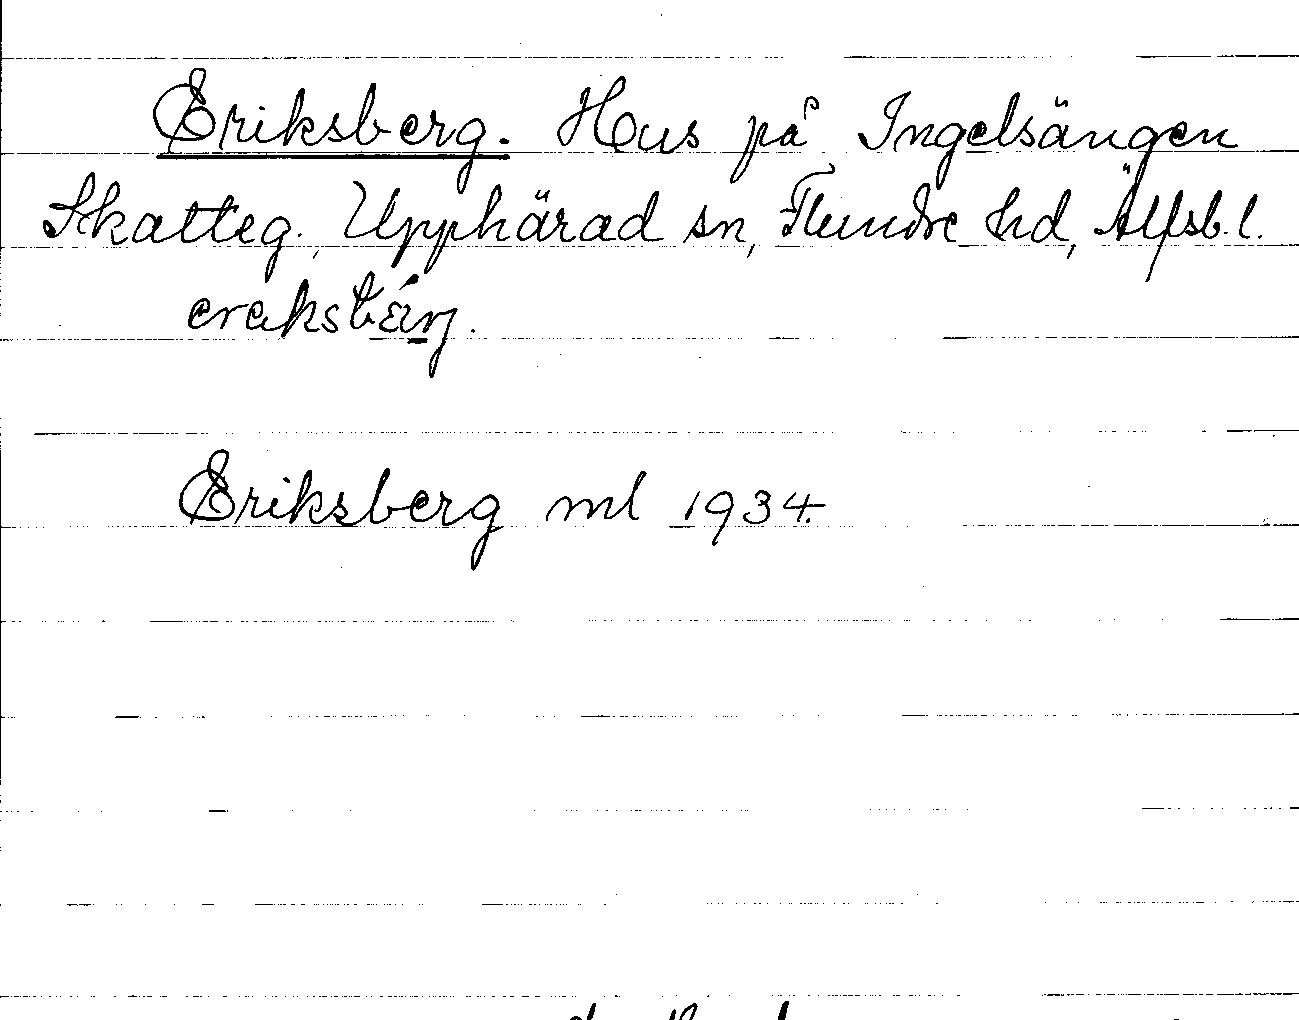 Eriksberg. Hus på Ingelsängen
Skatteg., Upphärad sn, Flundre hd, Älfsb. l.
Eriksberg ml 1934.